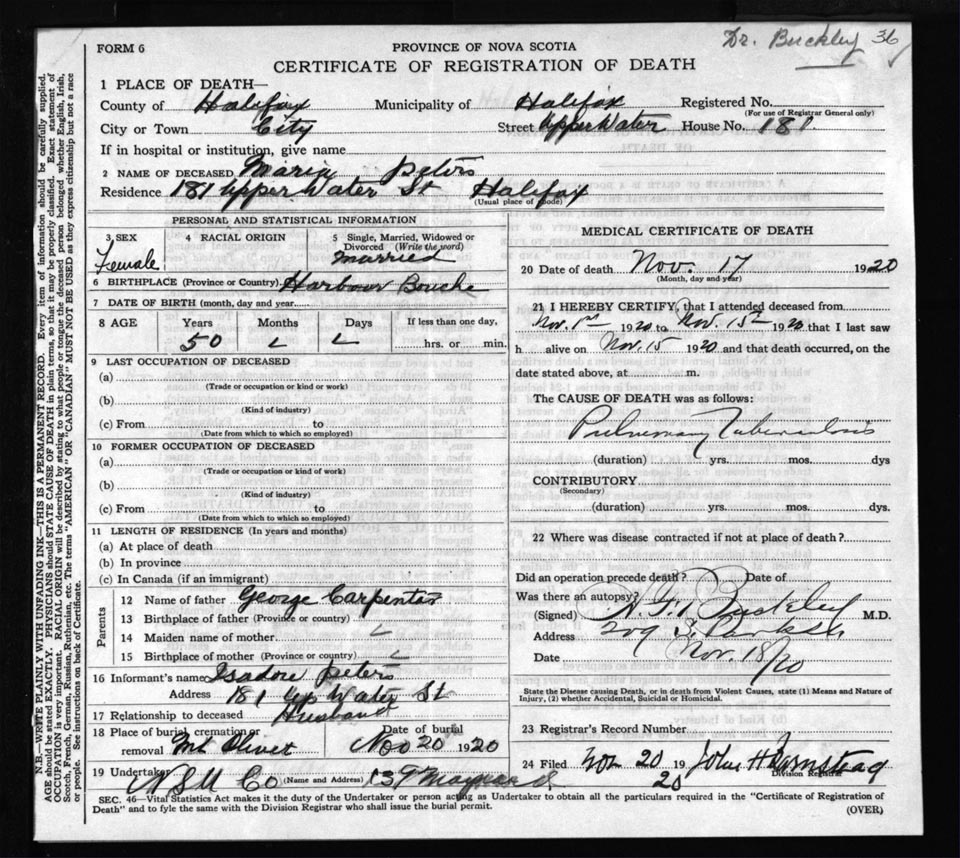 Dr. Buckley 36
FORM 6
PROVINCE OF NOVA SCOTIA
CERTIFICATE OF REGISTRATION OF DEATH
1 PLACE OF DEATH—
County of Halifax Municipality of Halifax Registered No.
(For use of Registrar General only)
City or Town City Street Upper Water House No. 181
If in hospital or institution, give name
2 NAME OF DECEASED Maria Peters
Residence 181 Upper Water St Halifax
(Usual place of abode)
PERSONAL AND STATISTICAL INFORMATION
3 SEX 4 RACIAL ORIGIN 5 Single, Married, Widowed or Divorced (Write the word)
Female Married
6 BIRTHPLACE (Province or Country) Harbour Bouche
7 DATE OF BIRTH (month, day and year)
8 AGE Years Months Days If less than one day,
50 hrs. or min.
9 LAST OCCUPATION OF DECEASED
(a)
(Trade or occupation or kind of work)
(b)
(Kind of industry)
(c) From to
(Date from which to which so employed)
10 FORMER OCCUPATION OF DECEASED
(a)
(Trade or occupation or kind of work)
(b)
(Kind of industry)
(c) From to
(Date from which to which so employed)
11 LENGTH OF RESIDENCE (In years and months)
(a) At place of death
(b) In province
(c) In Canada (if an immigrant)
Parents
12 Name of father George Carpenter
13 Birthplace of father (Province or country)
14 Maiden name of mother
15 Birthplace of mother (Province or country)
16 Informant's name Isadore Peters
Address 181 Up Water St
17 Relationship to deceased Husband
18 Place of burial, cremation or removal Mt Olivet Date of burial Nov 20 1920
19 Undertaker N S U Co (Name and Address) Maynard
MEDICAL CERTIFICATE OF DEATH
20 Date of death Nov. 17 1920
(Month, day and year)
21 I HEREBY CERTIFY, that I attended deceased from
Nov. 1st 1920 to Nov. 15th 1920 that I last saw
h alive on Nov. 15 1920 and that death occurred, on the
date stated above, at m.
The CAUSE OF DEATH was as follows:
Pulmonary Tuberculosis
(duration) yrs. mos. dys
CONTRIBUTORY
(Secondary)
(duration) yrs. mos. dys.
22 Where was disease contracted if not at place of death?
Did an operation precede death? Date of
Was there an autopsy?
(Signed) Buckley M.D.
Address 209 S. Park St
Date Nov. 18/20
State the Disease causing Death, or in death from Violent Causes, state (1) Means and Nature of
Injury, (2) whether Accidental, Suicidal or Homicidal.
23 Registrar's Record Number
24 Filed Nov 20 1920 John H Barnstead
Division Registrar
SEC. 46—Vital Statistics Act makes it the duty of the Undertaker or person acting as Undertaker to obtain all the particulars required in the "Certificate of Registration of
Death" and to fyle the same with the Division Registrar who shall issue the burial permit.
(OVER)
N.B.—WRITE PLAINLY WITH UNFADING INK—THIS IS A PERMANENT RECORD. Every item of information should be carefully supplied.
AGE should be stated EXACTLY. PHYSICIANS should STATE CAUSE OF DEATH in plain terms, so that it may be properly classified. Exact statement of
OCCUPATION is very important. RACIAL ORIGIN will be described by stating to what people or tongue the deceased person belonged whether English, Irish,
Scotch, French, German, Russian, Ruthenian, etc. The terms "AMERICAN" OR "CANADIAN" MUST NOT BE USED as they express citizenship but not a race
or people. See instructions on back of Certificate.